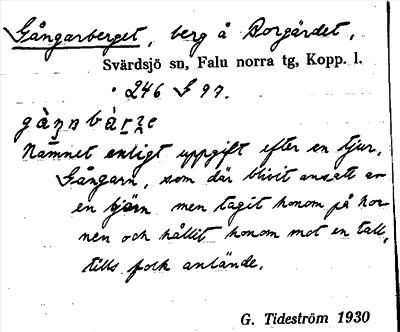 Gångarberget, berg å Borgärdet,
Svärdsjö sn, Falu norra tg, Kopp. l.
246 F 97.
Namnet enligt uppgift efter en tjur,
Gångarn, som där blivit ansatt av
en björn men tagit honom på hor-
nen och hållit honom mot en tall,
tills folk anlände.
G. Tideström 1930